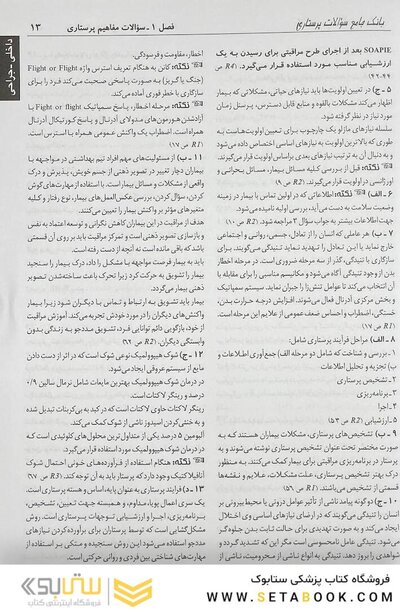 بانک جامع سؤالات پرستاری
فصل ۱ ـ سؤالات مفاهیم پرستاری
۱۳
داخلی - جراحی
SOAPIE بعد از اجرای طرح مراقبتی برای رسیدن به یک
ارزشیابی مناسب مورد استفاده قرار می‌گیرد.
۵ ـ ج) در تعیین اولویت‌ها باید نیازهای حیاتی، مشکلاتی که بیمار
اظهار می‌کند مشکلات بالقوه و منابع قابل دسترس، پرسنل زمان
مورد نیاز در نظر گرفته شود.
سلسله نیازهای مازلو یک چارچوب برای تعیین اولویت‌هاست به
طوری که بالاترین اولویت به نیازهای اساسی اختصاص داده می‌شود
و به دنبال آن به ترتیب نیازهای بعدی براساس اولویت قرار می‌گیرند.
نکته: قبل از بررسی کلیه مسائل بیمار، مسائل بحرانی و
اورژانسی در اولویت قرار می‌گیرند.
۶ ـ الف) نکته: اطلاعاتی که در اولین تماس با بیمار در زمینه
وضعیت سلامت به دست می‌آید، بررسی اولیه نامیده می‌شود.
جهت اطلاعات بیشتر به جواب سؤال ۳ مراجعه شود.
۷ ـ ب) هر عاملی که انسان را از تعادل، جسمی، روانی و اجتماعی
خارج نماید یا این تعادل را تهدید نماید تنیدگی می‌گویند. برای
سازگاری با تنیدگی، گذر از سه مرحله ضروری است. در مرحله اخطار
بدن از وجود تنیدگی آگاه می‌شود و مکانیسم مناسبی را برای مقابله با
آن انتخاب می‌کند تا عوامل تنش‌زا را جبران نماید. سیستم سمپاتیک
و بخش مرکزی آدرنال فعال می‌شوند. افزایش درجه حرارت بدن،
خستگی، اضطراب و احساس ضعف عمومی از علایم این مرحله است.
۸ ـ الف) مراحل فرآیند پرستاری شامل:
۱ ـ بررسی و شناخت که شامل دو مرحله الف) جمع‌آوری اطلاعات و
ب) تجزیه و تحلیل اطلاعات
۲ ـ تشخیص پرستاری
۳ ـ برنامه‌ریزی
۴ ـ اجرا
۵ ـ ارزشیابی
۹ ـ ب) تشخیص‌های پرستاری، مشکلات بیماران هستند که به
صورت مختصر تحت عنوان تشخیص پرستاری نوشته می‌شوند و به
پرستار در برنامه‌ریزی مراقبتی برای بیمار کمک می‌کنند. به منظور
درک بهتر تشخیص پرستاری، علت مشکلات، علایم و نشانه‌ها
قسمتی از تشخیص می‌باشند.
۱۰ ـ ج) دو گونه پیامد ناشی از تأثیر عوامل درونی یا محیط بیرونی بر
انسان را تنیدگی می‌گویند که در ارضای نیازهای اساسی وی اختلال
ایجاد می‌کند و به صورت تهدیدی برای حالت ثبات بدن جلوه‌گر
می‌شود. تنیدگی احساسی است مگر این که تعبیر دیگری
شواهدی را بروز دهد. تنیدگی به انواع ناشی از محرومیت، ناشی از
اخطار، مقاومت و فرسودگی.
نکته: کانن به هنگام تعریف استرس واژه Flight or Fight
(جنگ یا گریز) به صورت پاسخی صحبت می‌کند فرد را برای
سازگاری با خطر فوری آماده می‌کند.
نکته: مرحله اخطار، پاسخ سمپاتیک Fight or flight با
آزاد شدن هورمون‌های مدولای آدرنال و پاسخ کورتیکال آدرنال
همراه است. اضطراب یک واکنش عمومی همراه با استرس است.
۱۱ ـ ب) از مسئولیت‌های مهم افراد تیم بهداشتی در مواجهه با
بیماران دچار تغییر در تصویر ذهنی از جسم خویش، پذیرش و درک
واقعی از مشکلات و مسائل بیمار است. با استفاده از مهارت‌های گوش
کردن، سؤال کردن، بررسی عکس‌العمل‌های بیمار، نوع رفتار و کلیه
متغیرهای مؤثر بر واکنش بیمار را تعیین می‌کنند.
هدف از مراقبت در این بیماران کاهش نگرانی و توسعه اعتماد به نفس
و بازسازی تصویر ذهنی است و تمرکز مراقبت باید بر روی آن قسمتی
باشد که باقی مانده است نه آنچه از دست رفته است.
باید به بیمار فرصت مواجهه با مشکل را داد، درک بیمار را سنجید
بیمار را تشویق به حرکت کرد زیرا تحرک باعث ساخته‌شدن تصویر
ذهنی بیمار می‌گردد.
بیمار باید تشویق به ارتباط و تماس با دیگران شود زیرا بیمار
واکنش‌های دیگران را در مورد خودش تجربه می‌کند. آموزش مراقبت
از خود، بازگویی دائم توانایی فرد، تشویق مددجو به زندگی بدون
وابستگی دیگران.
۱۲ ـ ج) شوک هیپوولمیک نوعی شوک است که در اثر از دست دادن
مایع از سیستم عروقی ایجاد می‌شود.
در درمان شوک هیپوولمیک بهترین مایعات شامل نرمال سالین ۰/۹
درصد و رینگر لاکتات است.
رینگر لاکتات حاوی لاکتات است که در کبد به بی‌کربنات تبدیل شده
و به خنثی‌کردن اسیدوز ناشی از شوک کمک می‌کند.
آلبومین ۵ درصد یکی از متداول‌ترین محلول‌های کلوئیدی است که
در درمان شوک هیپوولمیک مورد استفاده قرار می‌گیرد.
نکته: هنگام استفاده از فرآورده‌های خونی احتمال شوک
آنافیلاکتیک وجود دارد که پرستار باید به آن توجه کند.
۱۳ ـ د) فرایند پرستاری به عنوان پایه، اساس و هسته پرستاری است.
یک سری اعمال پویا، مداوم، و هدفمند جهت تعیین، تشخیص،
برنامه‌ریزی، اجرا و ارزشیابی توجهات پرستاری است. روش
مشکل‌گشایی است که توسط پرستاران برای برآورده‌کردن نیازهای
مددجو استفاده می‌شود این روش سنجیده و متکی بر استفاده از
مهارت‌های شناختی بین فردی و روانی حرکتی است.
فروشگاه کتاب پزشکی ستابوک
www.SETABOOK.com
ستابوک
فروشگاه اینترنتی کتاب